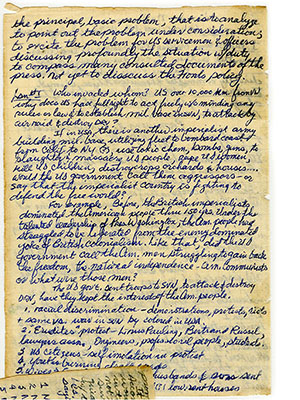 the principal, basic problem, that is to analyze
to point out the problem under consideration,
to excite the problem for US servicemen & officers
discussing profoundly the situation
to compress many consulted documents of the
press. Not yet to disscuss the Fronts policy.
who invaded whom? US over 10,000 km from VN
why does its have full right to act freely w/o minding any
rules or law & to establish mil. base in SVN, to attack by
air raid & destroy
If in USA, there is another imperialist army
building mil. base, inteferring fleet to bombard coast
from to NY. It's use toxic chem, bombs, guns, to
slaughter & massacry US people, gape US women,
kill US children, destroy crops orchards & houses...
would the US government call them agressors - or
say that the imperialist country is fighting to
defend the free world?
For example, Before, the British imperialists
dominated the American people thru 150 yrs. Under the
talented leadership of Pres. Washington, the Am. people have
struggled to be liberated from the enemy dominated
yoke of British colonialism. Like that, did the US
government call the Am. men struggling to again back
the freedom, the national independence - Comm. Communists
or what were those men?
The US gov't. sent troops to SVN, to attack & destroy
DRV, have they kept the interest of the Am. people.
1. racial discrimination - demonstrations, protests, riots
same as war in SVN by in USA.
2. "Erudites" protest - Linus Pauling, Bertrand Russel
lawyers assn, Engineers, professional people, students.
3 US citizens - self imolation in protest
4 youths burning draft cards
5 husbands & sons sent
low, sent houses